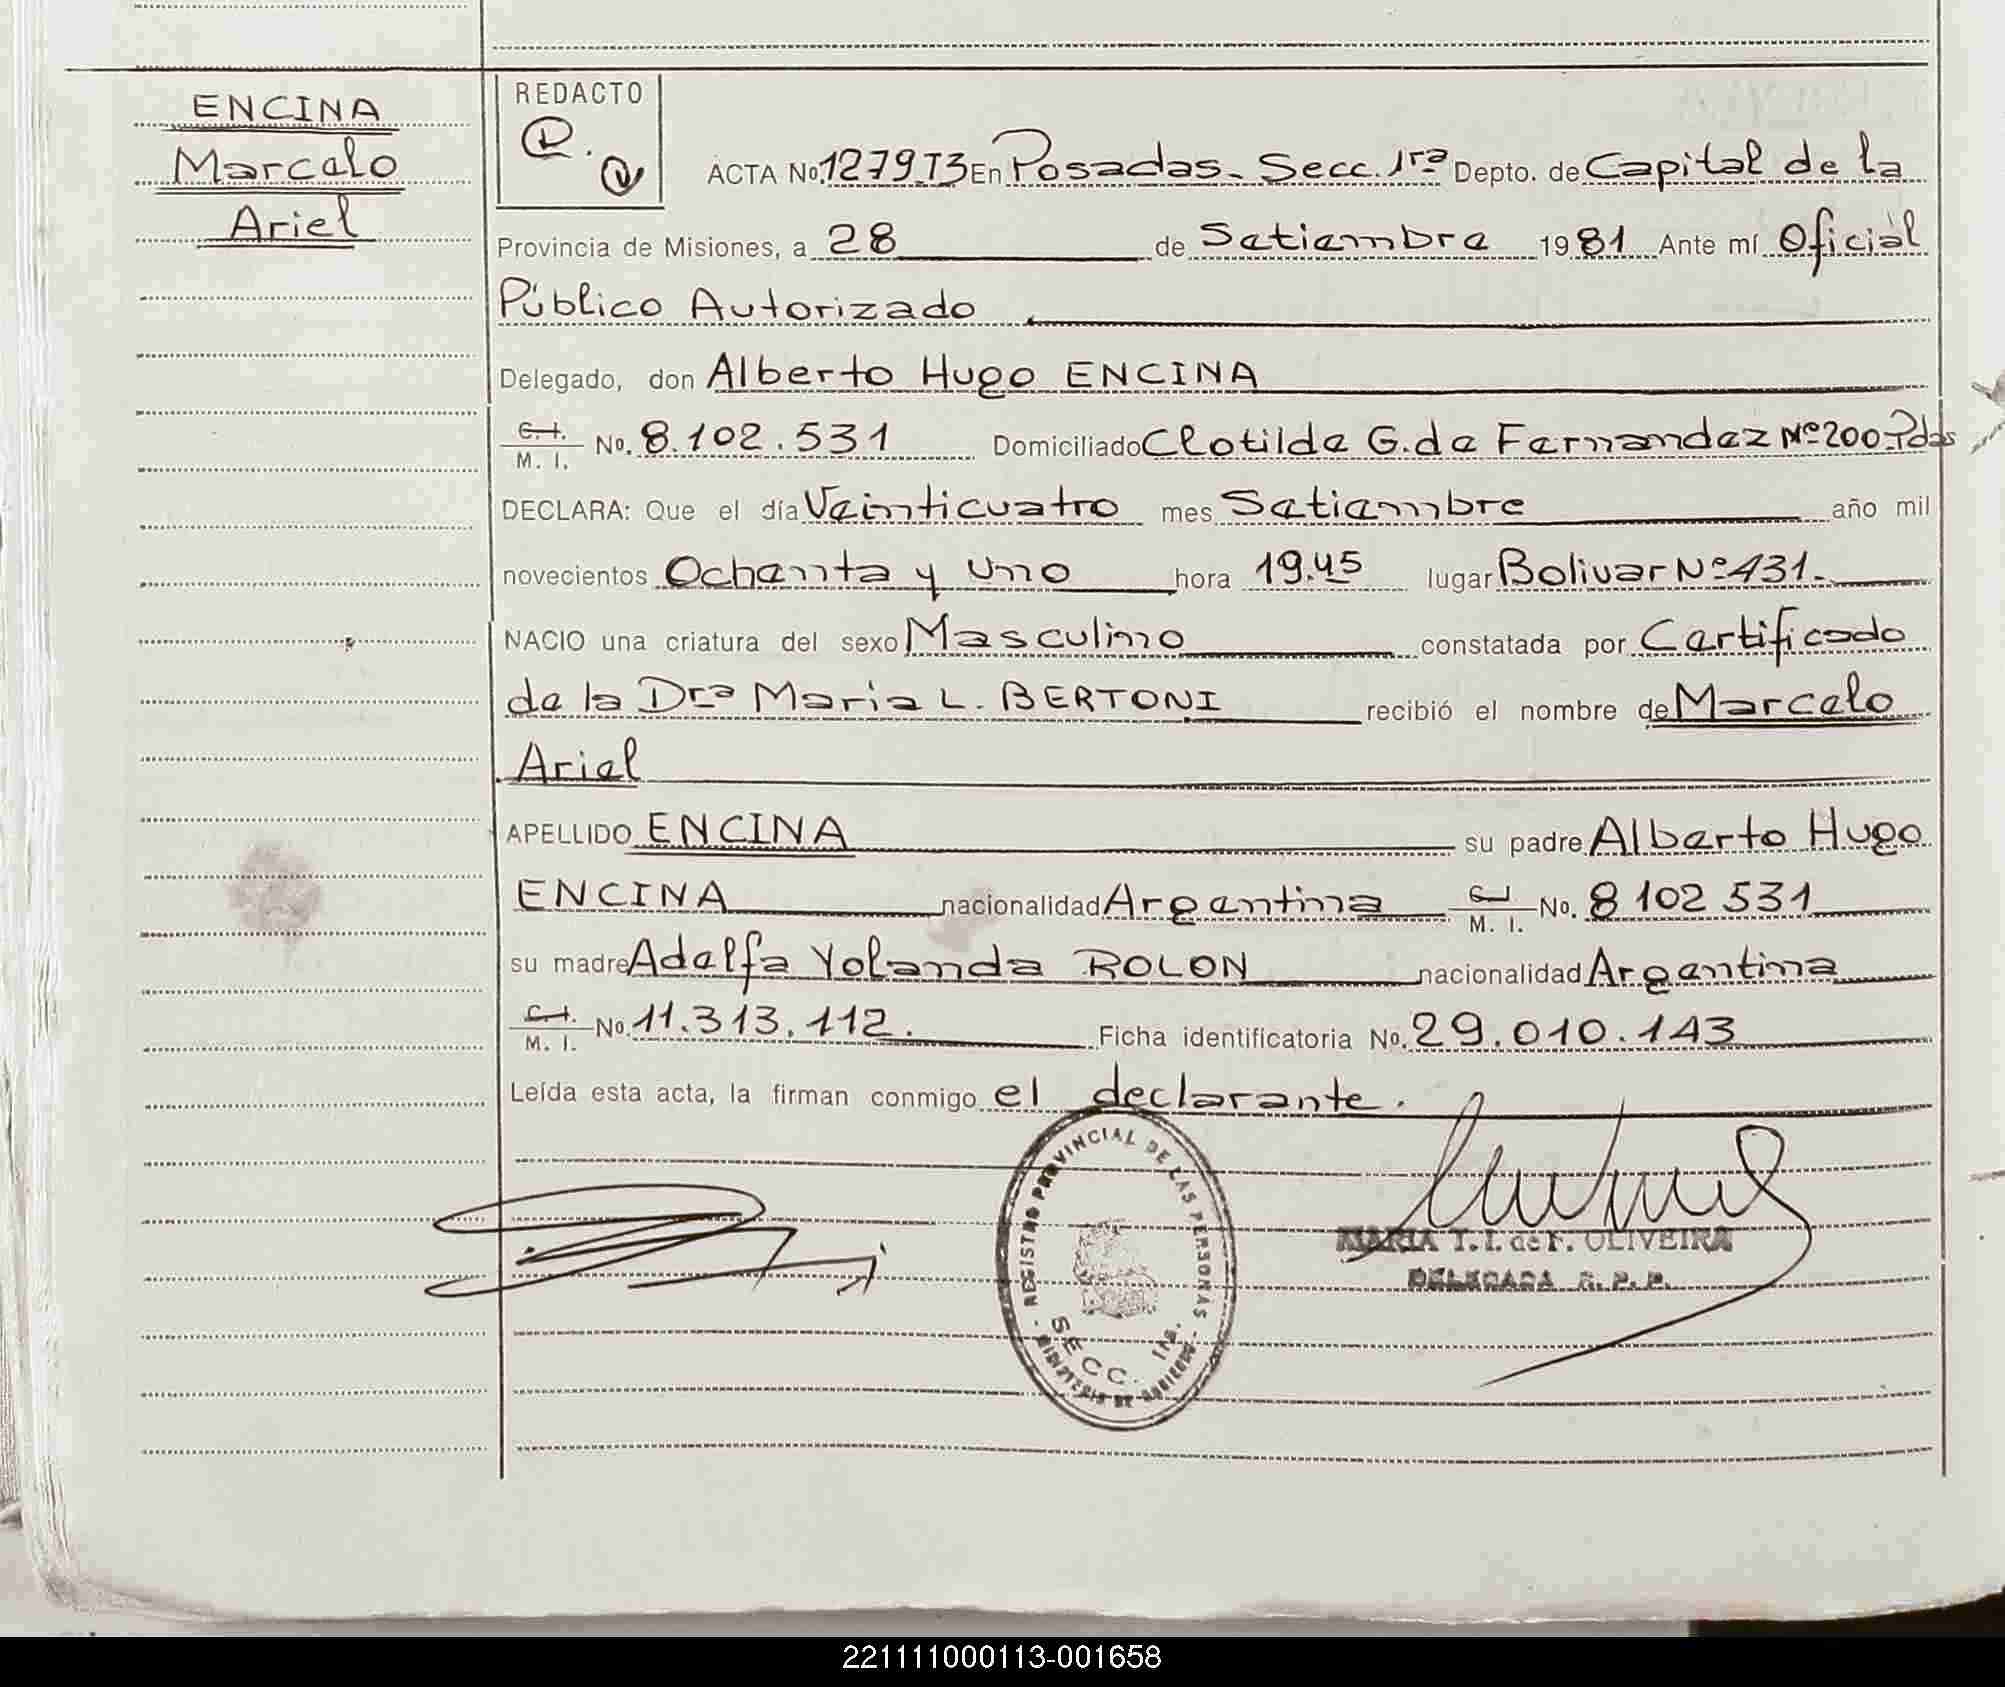 ENCINA
Marcelo
Ariel
REDACTO
ACTA No. 1279 T3 En Posadas - Secc. 1ra Depto. de Capital de la
Provincia de Misiones, a 28 de Setiembre 1981 Ante mí Oficial
Público Autorizado
Delegado, don Alberto Hugo ENCINA
C. I. / M. I. No. 8.102.531 Domiciliado Clotilde G. de Fernandez Nº 200 - Pdas
DECLARA: Que el día Veinticuatro mes Setiembre año mil
novecientos Ochenta y uno hora 19.45 lugar Bolivar Nº 431.
NACIO una criatura del sexo Masculino constatada por Certificado
de la Dra Maria L. BERTONI recibió el nombre de Marcelo
Ariel
APELLIDO ENCINA su padre Alberto Hugo
ENCINA nacionalidad Argentina C. I. / M. I. No. 8 102 531
su madre Adelfa Yolanda ROLON nacionalidad Argentina
C. I. / M. I. No. 11.313.112. Ficha identificatoria No. 29.010.143
Leída esta acta, la firman conmigo el declarante.
REGISTRO PROVINCIAL DE LAS PERSONAS
SECC. 1ra.
MINISTERIO DE GOBIERNO
MARIA T. I. de F. OLIVEIRA
DELEGADA R. P. P.
221111000113-001658